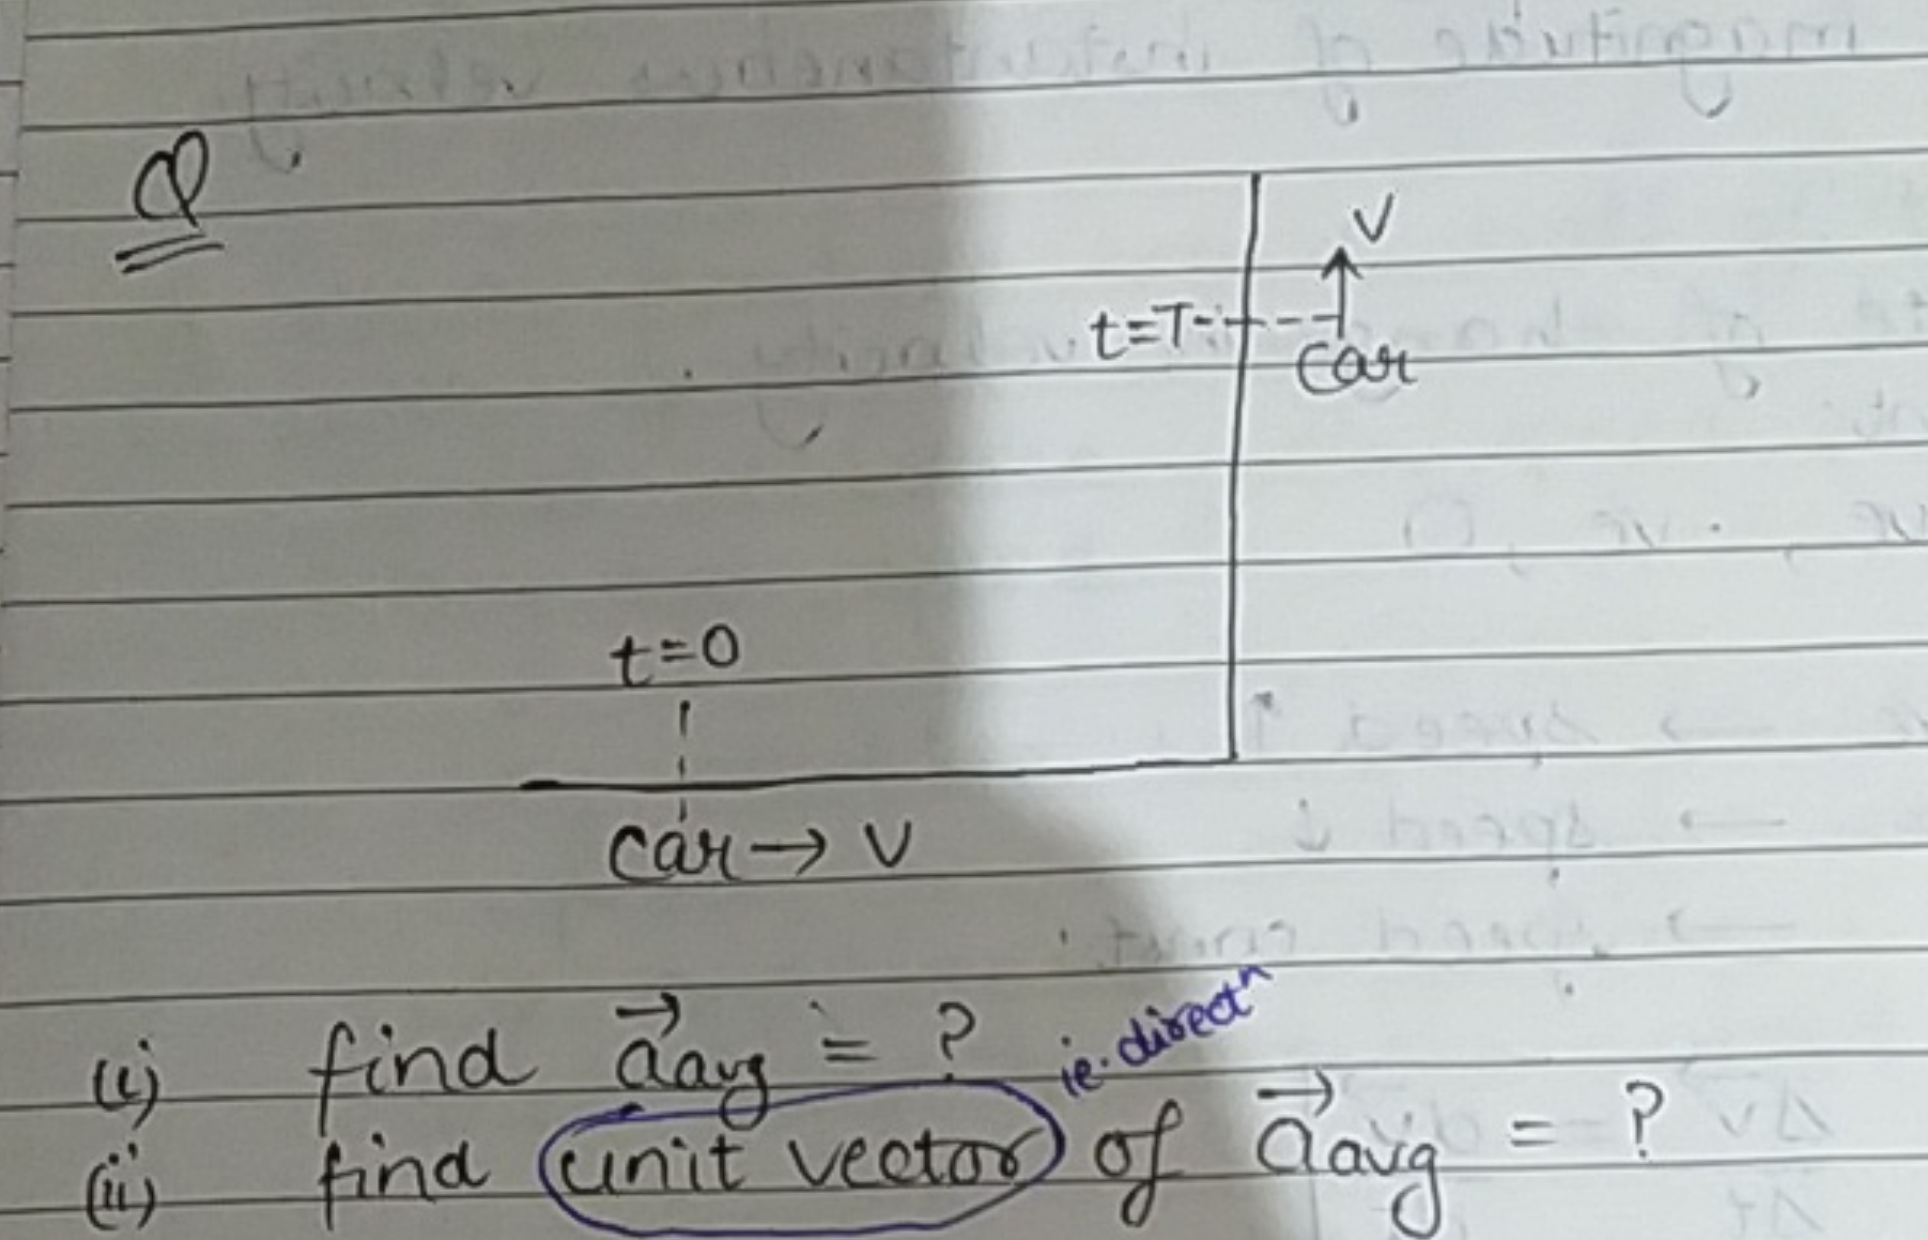 Q
V
t=T
car
t=0
car → V
(i) find a⃗avg = ?
ie. directⁿ
(ii) find unit vector of a⃗avg = ?